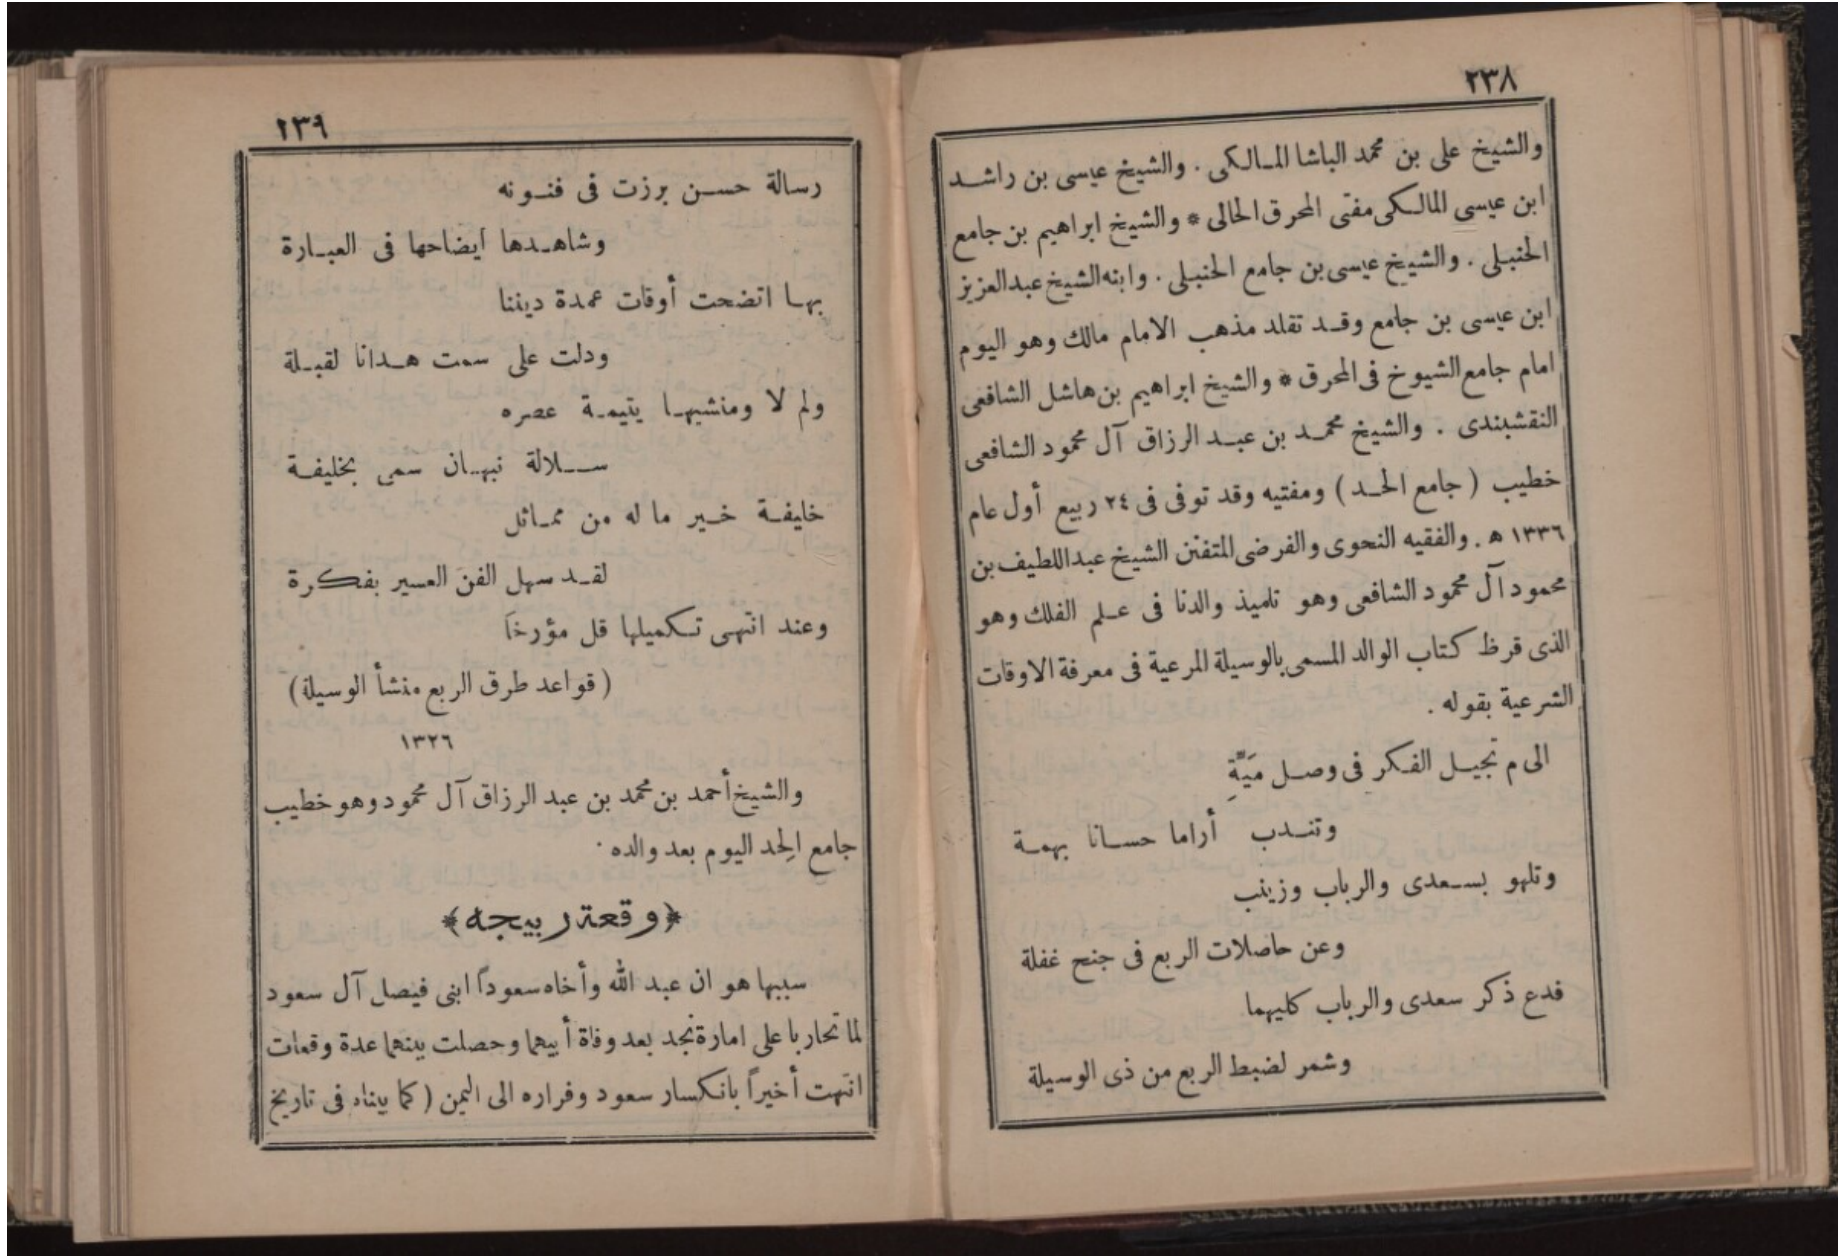 ٢٣٨
والشيخ على بن محمد الباشا المالكى . والشيخ عيسى بن راشد
ابن عيسى المالكى مفتى المحرق الحالى * والشيخ ابراهيم بن جامع
الحنبلى . والشيخ عيسى بن جامع الحنبلى . وابنه الشيخ عبدالعزيز
ابن عيسى بن جامع وقد تقلد مذهب الامام مالك وهو اليوم
امام جامع الشيوخ فى المحرق * والشيخ ابراهيم بن هاشل الشافعى
النقشبندى . والشيخ محمد بن عبد الرزاق آل محمود الشافعى
خطيب ( جامع الحد ) ومفتيه وقد توفى فى ٢٤ ربيع أول عام
١٣٣٦ ه . والفقيه النحوى والفرضى المتفنن الشيخ عبداللطيف بن
محمود آل محمود الشافعى وهو تلميذ والدنا فى علم الفلك وهو
الذى قرظ كتاب الوالد المسمى بالوسيلة المرعية فى معرفة الاوقات
الشرعية بقوله .
الى م تجيل الفكر فى وصل مَيَّةِ
وتندب أراما حسانا بهمة
وتلهو بسعدى والرباب وزينب
وعن حاصلات الربع فى جنح غفلة
فدع ذكر سعدى والرباب كليهما
وشمر لضبط الربع من ذى الوسيلة
٢٣٩
رسالة حسن برزت فى فنونه
وشاهدها ايضاحها فى العبارة
بها اتضحت أوقات عمدة ديننا
ودلت على سمت هدانا لقبلة
ولم لا ومنشيها يتيمة عصره
سلالة نبهان سمى بخليفة
خليفة خير ما له من مماثل
لقد سهل الفن العسير بفكرة
وعند انتهى تكميلها قل مؤرخاً
( قواعد طرق الربع منشأ الوسيلة )
١٣٢٦
والشيخ أحمد بن محمد بن عبد الرزاق آل محمود وهو خطيب
جامع الحِد اليوم بعد والده .
﴿ وقعة ربيجه ﴾
سببها هو ان عبد الله وأخاه سعوداً ابنى فيصل آل سعود
لما تحاربا على امارة نجد بعد وفاة أبيهما وحصلت بينهما عدة وقعات
انتهت أخيراً بانكسار سعود وفراره الى اليمن ( كما بيناه فى تاريخ